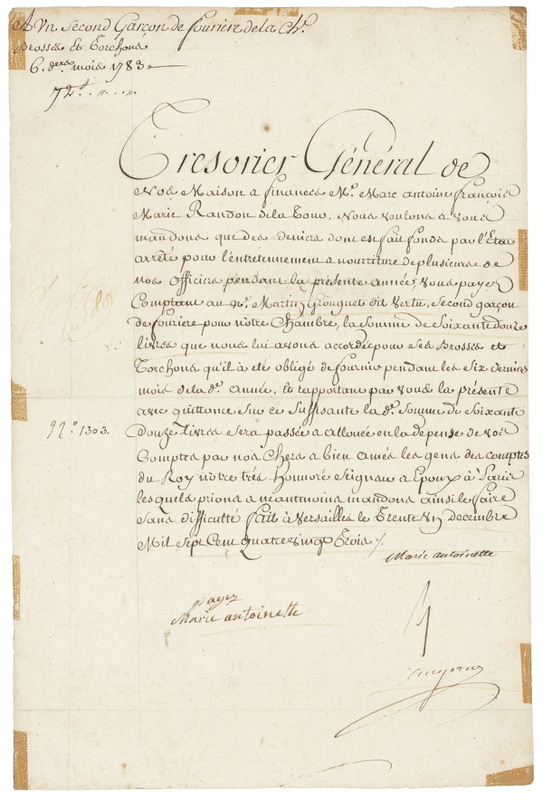 A Vn Second Garçon de fouriere de la Chre.
Brosses et Torchons
6. ders. mois 1783
72tt. „ . „
Tresorier Général de
Nos Maison & finances Mr. Marc antoine françois
Marie Randon de la Tour, Nous voulons & vous
mandons que des deniers dont est fait fonds par l'Etat
arrêté pour l'entretennement & nourriture de plusieurs de
nos Officiers pendant la présente année, vous payez
Comptant au Sr. Martin Grougnet dit Vertu, Second garçon
de fouriere pour notre Chambre, la Somme de Soixante douze
livres que nous lui avons accordée pour les Brosses et
Torchons qu'il a été obligé de fournir pendant les Six derniers
mois de la de. année, Et rapportant par vous la présente
avec quittance Sur ce Suffisante la de. Somme de Soixante
No. 1303.
douze Livres Sera passée & allouée en la dépense de vos
Comptes par nos Chers & bien amés les gens des comptes
du Roy notre très honnoré Seigneur & Epoux à Paris
lesquels prions & néantmoins mandons ainsi le faire
Sans difficulté fait à Versailles le Trente Un decembre
Mil Sept Cent Quatrevingt Trois /.
Marie antoinette
payez
Marie antoinette